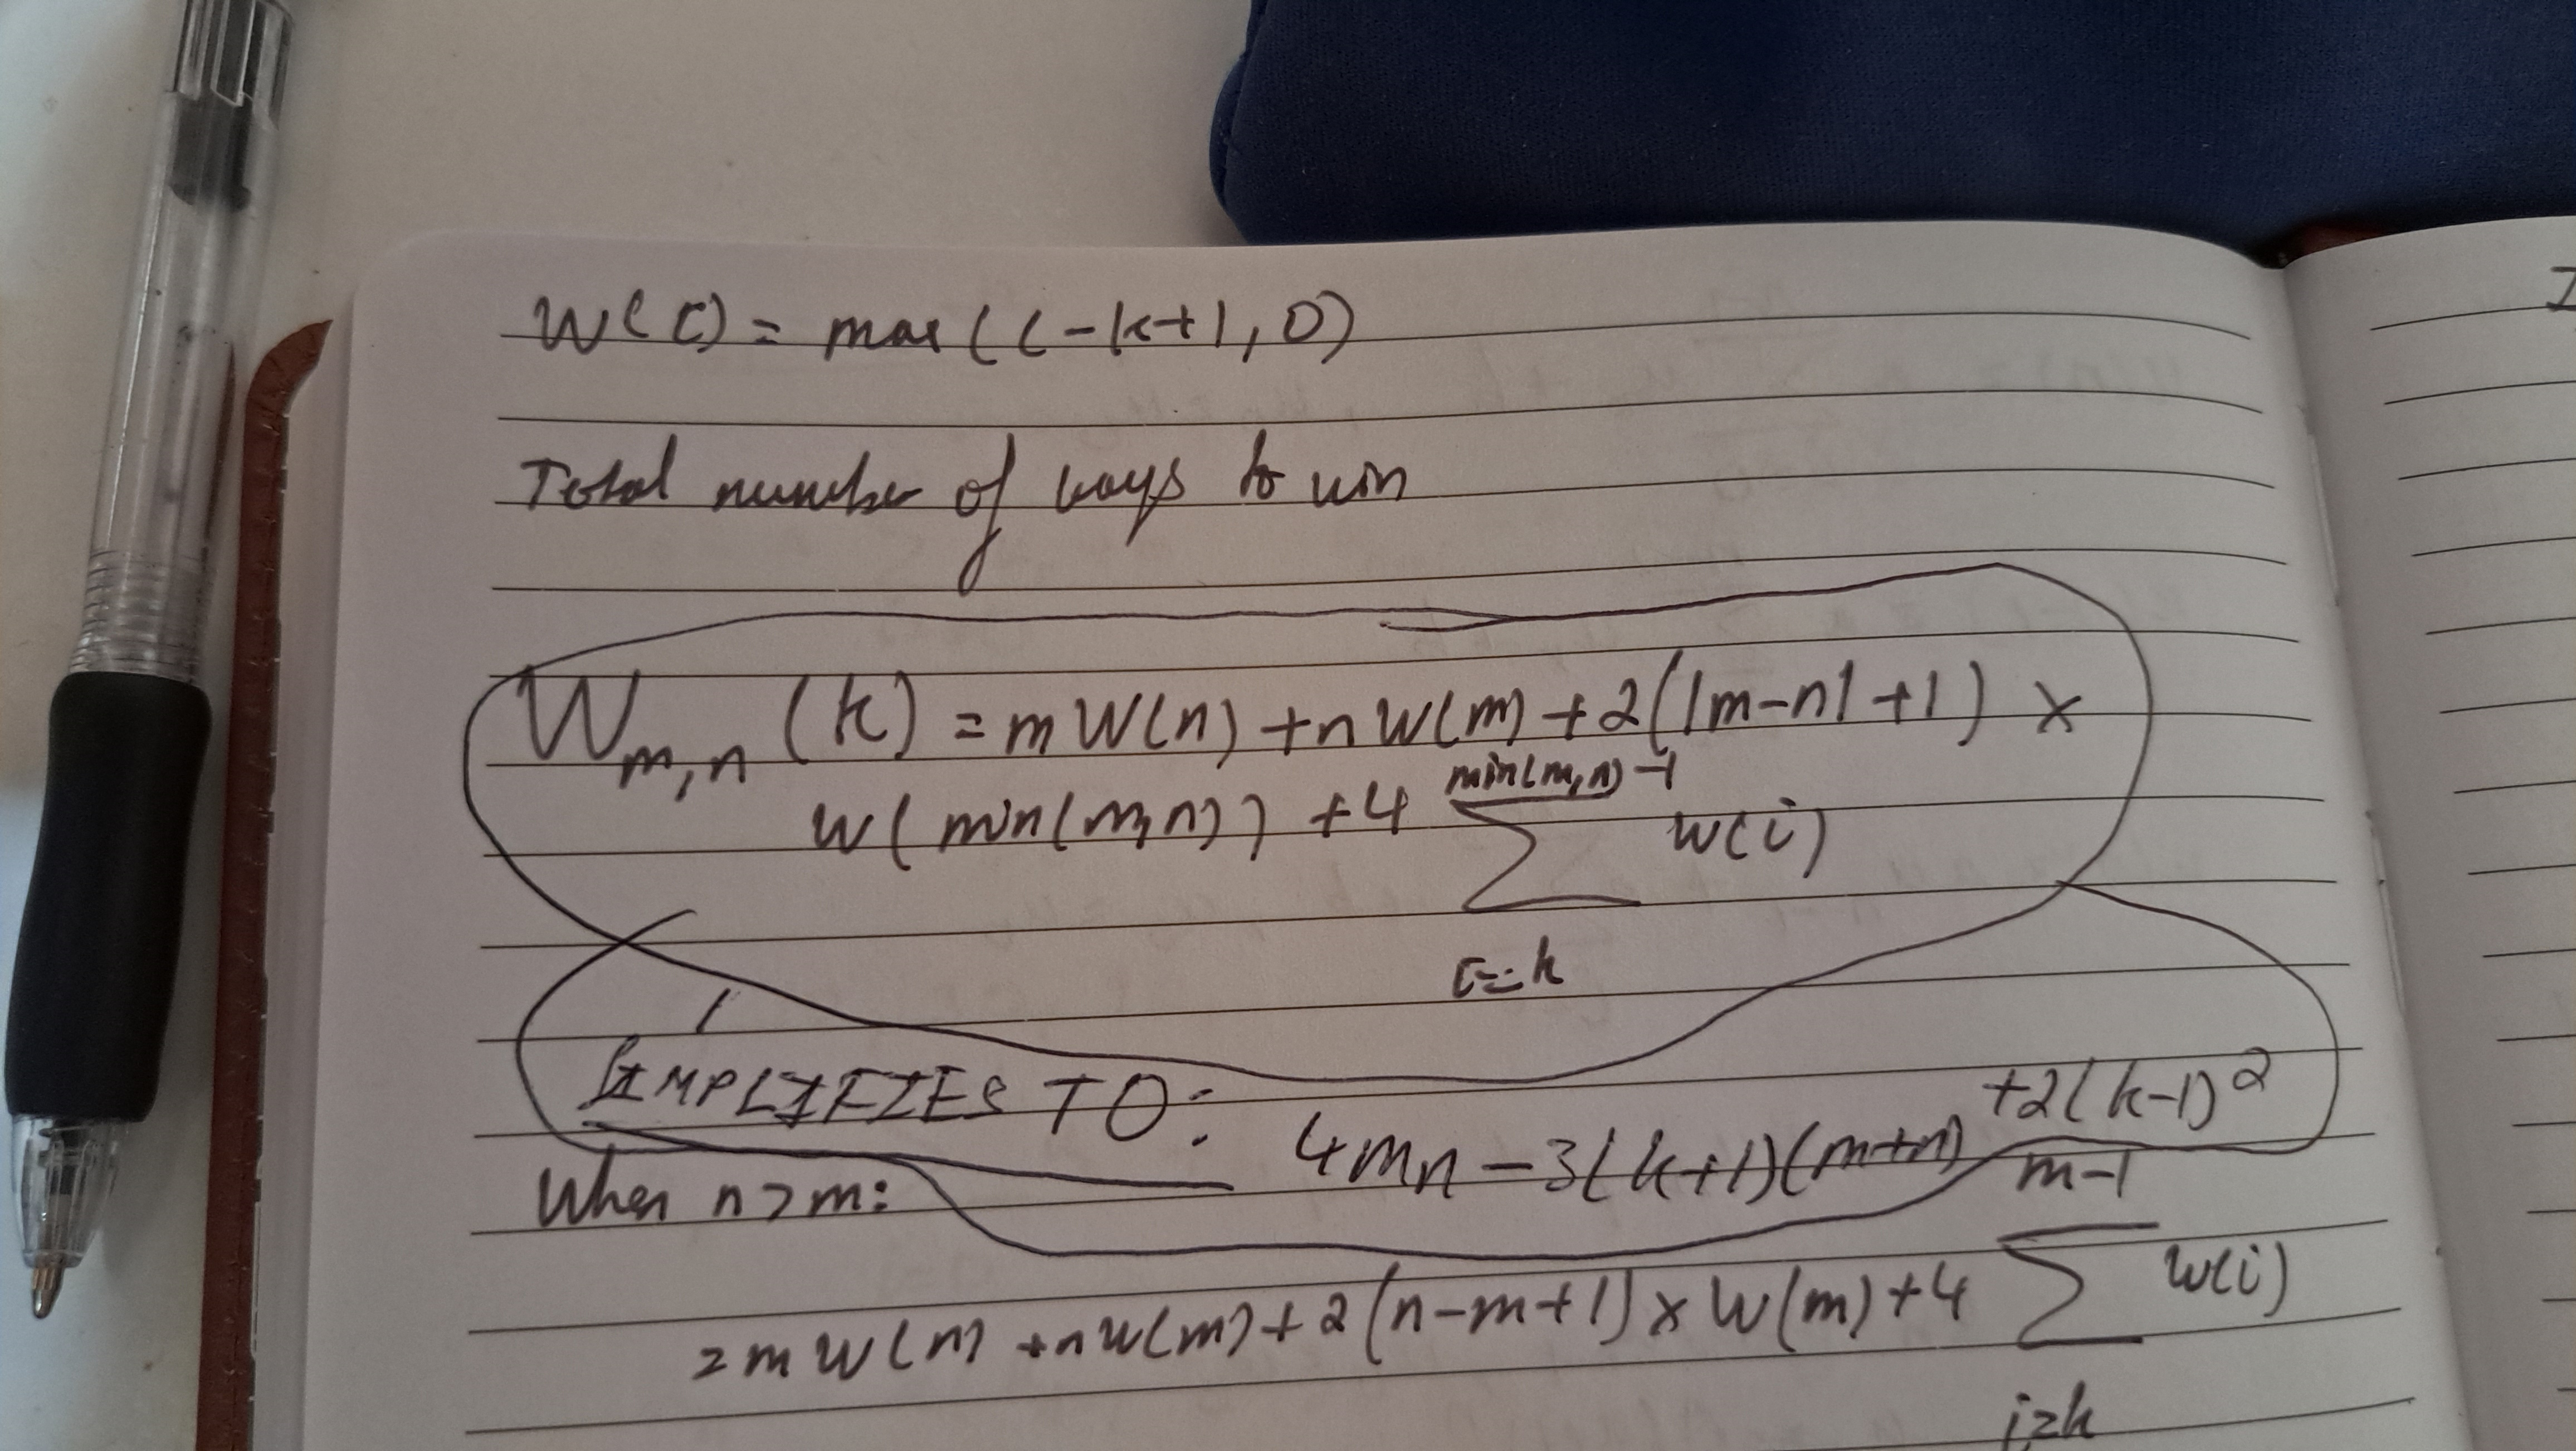 W(i) = max(i-k+1, 0)
Total number of ways to win
W_{m,n}(k) = mW(n) + nW(m) + 2(|m-n|+1) ×
W(min(m,n)) + 4 \sum_{i=k}^{min(m,n)-1} W(i)
SIMPLIFIES TO: 4mn - 3(k+1)(m+n) + 2(k-1)^2
When n>m:
= mW(n) + nW(m) + 2(n-m+1) × W(m) + 4 \sum_{i=k}^{m-1} W(i)